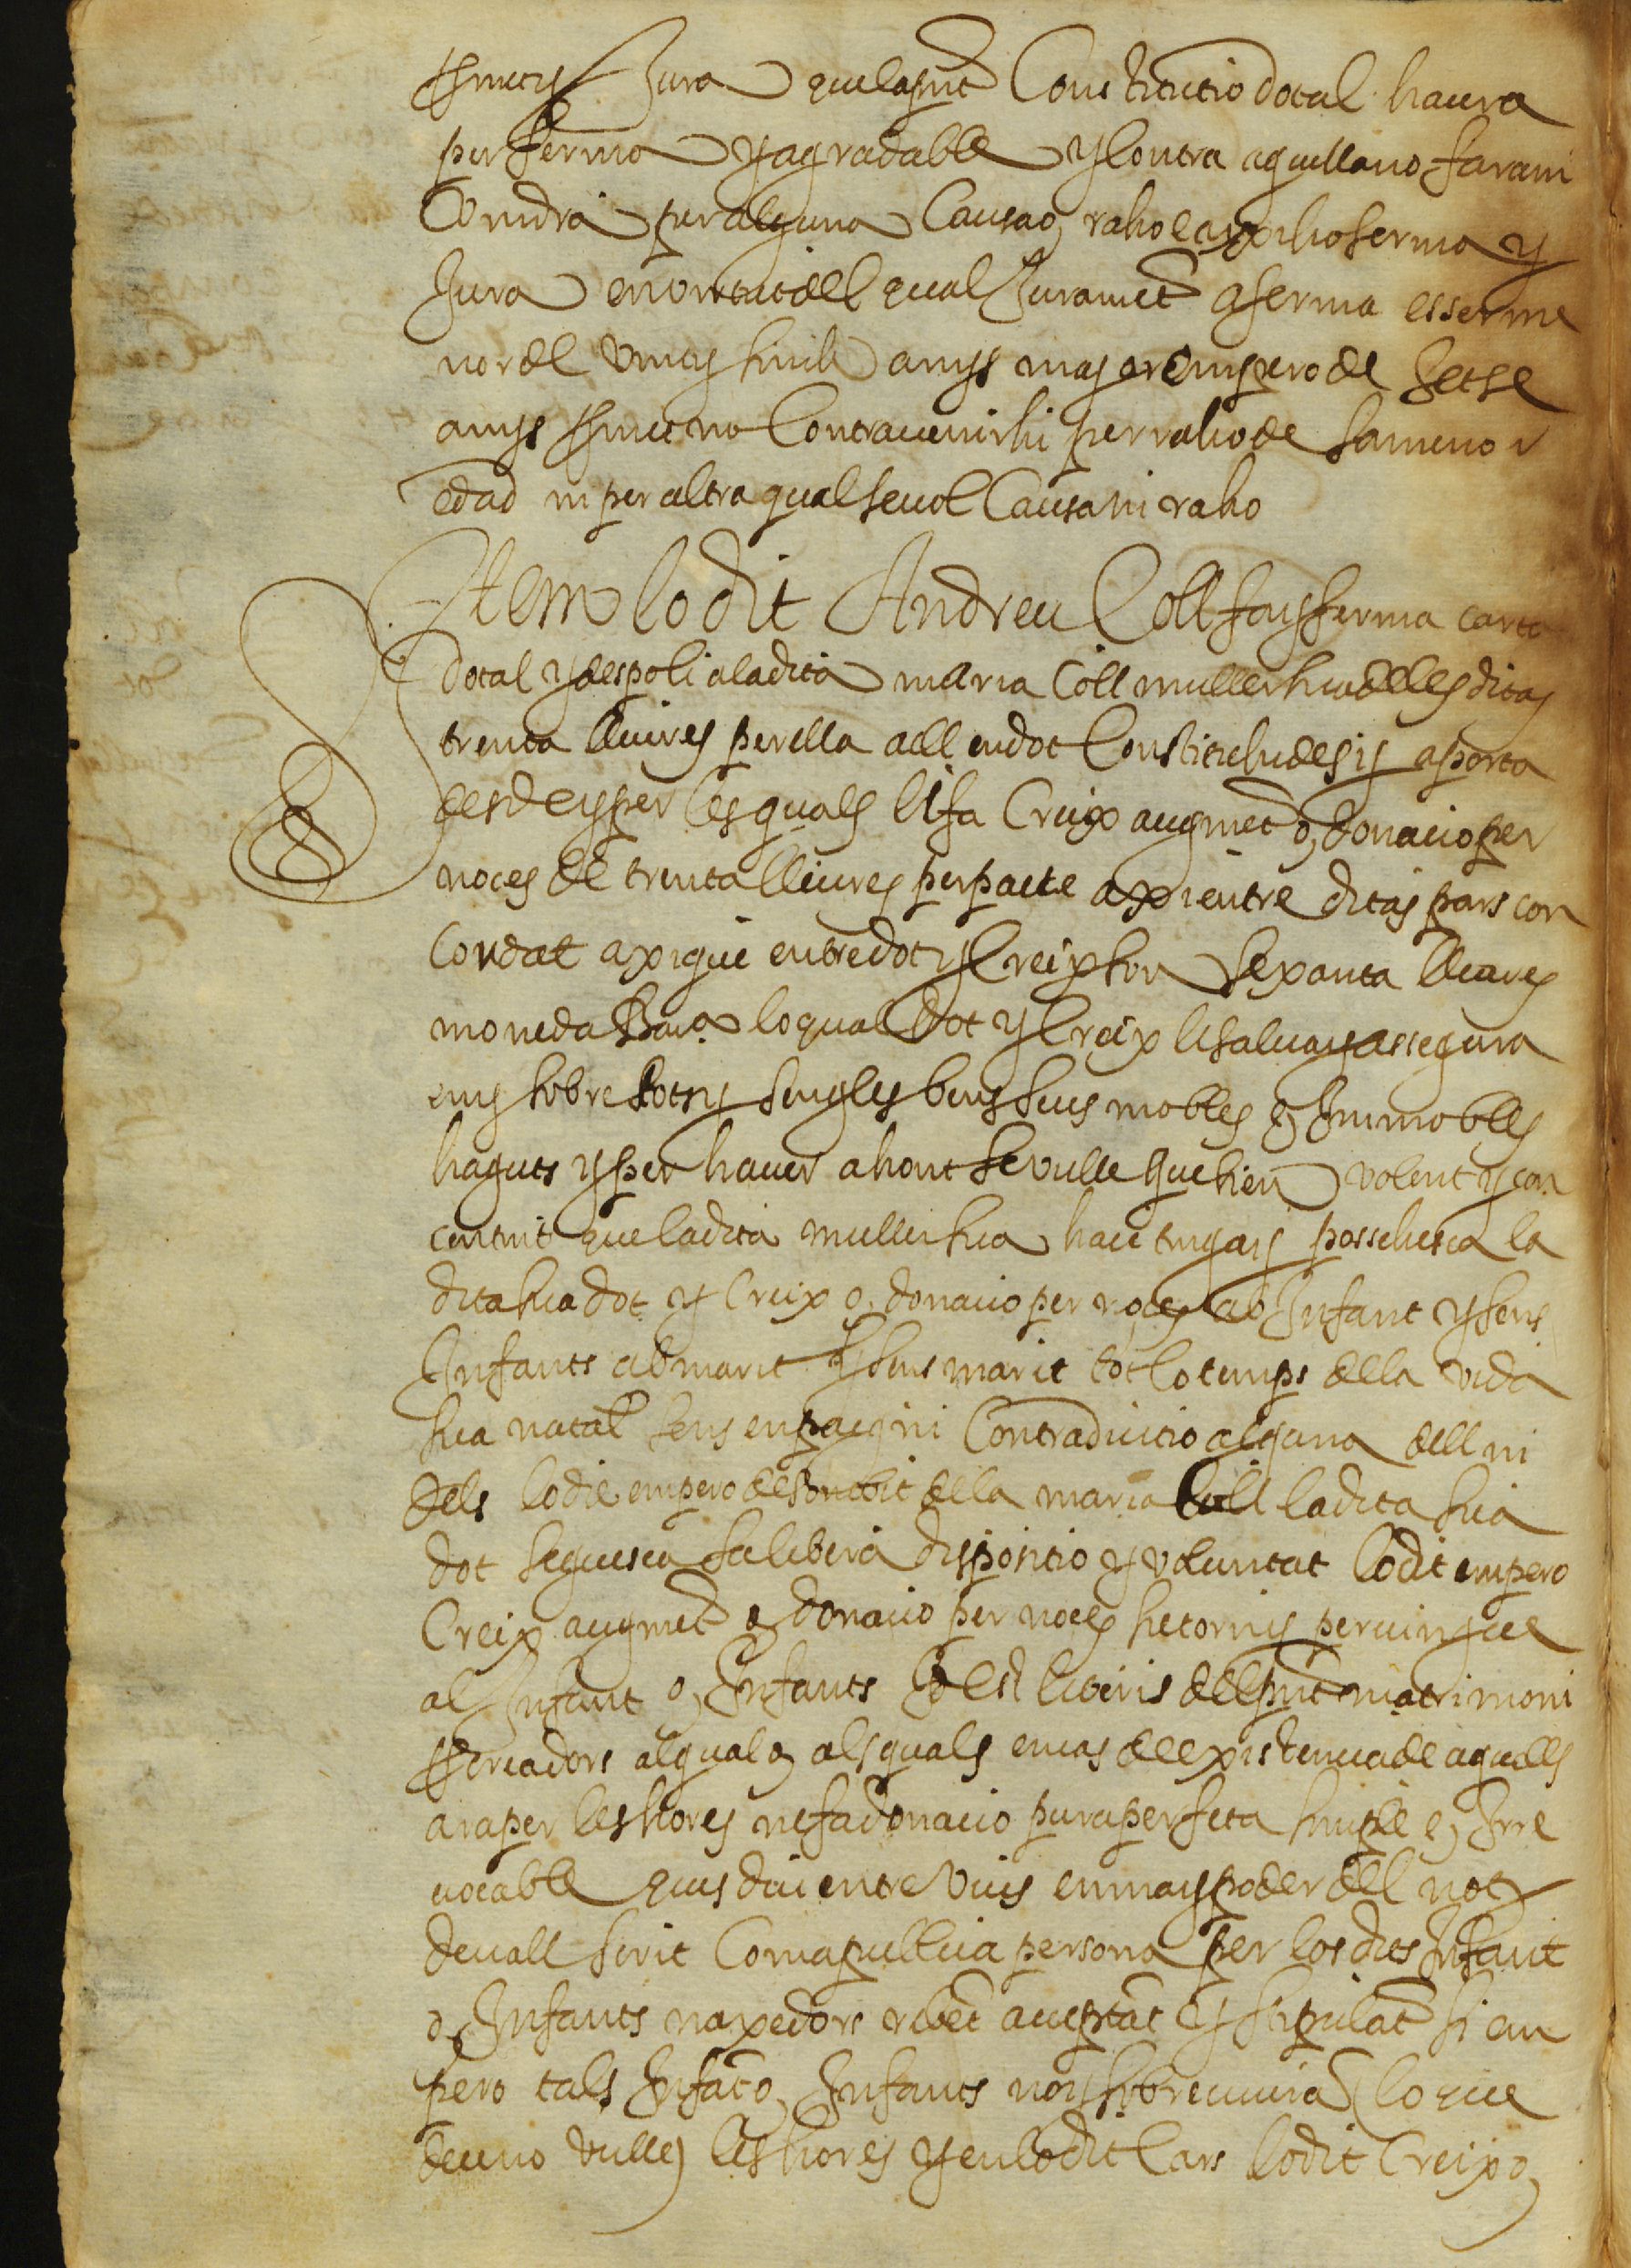 promet y Jura que la pnt Constitutio dotal haura
per ferma y agradable y Contra aquella no fara ni
Contra vindra per alguna Causa o, raho e axi ho ferma y
Jura en virtut del qual Jurament aferma esser me
nor de vint y sinch anys major empero de setse
anys promet no Contravenirhi per raho de sa menor
edad ni per altra qualsevol Causa ni raho
Item lo dit Andreu Coll fa y ferma carta
dotal y despoli a la dita maria Coll muller sua de les ditas
trenta lliures per ella a ell en dot Constituhides y aporta
des de y per les quals li fa Creix augmet o, donacio per
noces de trenta lliures per pacte axi entre ditas pars con
Cordat axi que entre dot y Creix son sexanta lliures
moneda Bar.a lo qual dot y Creix li salva y assegura
en y sobre tots y sengles bens seus mobles e, Immobles
haguts y per haver ahont se vulle que sien volent y con
centint que la dita muller sua haie tinga y possehesca la
dita sua dot y Creix o, donacio per noces ab Infant y sens
Infants ab marit y sens marit tot lo temps de la vida
sua natal sens enpaig ni Contradictio alguna dell ni
dels seus empero de obit della maria Coll la dita sua
dot seguesca sa libera dispositio y voluntat lo dit empero
Creix augmet o donacio per noces se torn y pervingue
al Infant o, Infants del pnt matrimoni
procreadors al qual o, als quals en cas de existencia de aquells
ara per les hores ne fa donacio pura perfeta simple e, Irre
vocable ques diu entre vius en ma y poder del not
devall scrit Com a publica persona per los dits Infant
o, Infants naxedors rebet acceptat y stipulat si em
pero tals Infat o, Infants noy sobreviura (lo que
deu no vulle) les hores y en lo dit Cars lo dit Creix o,